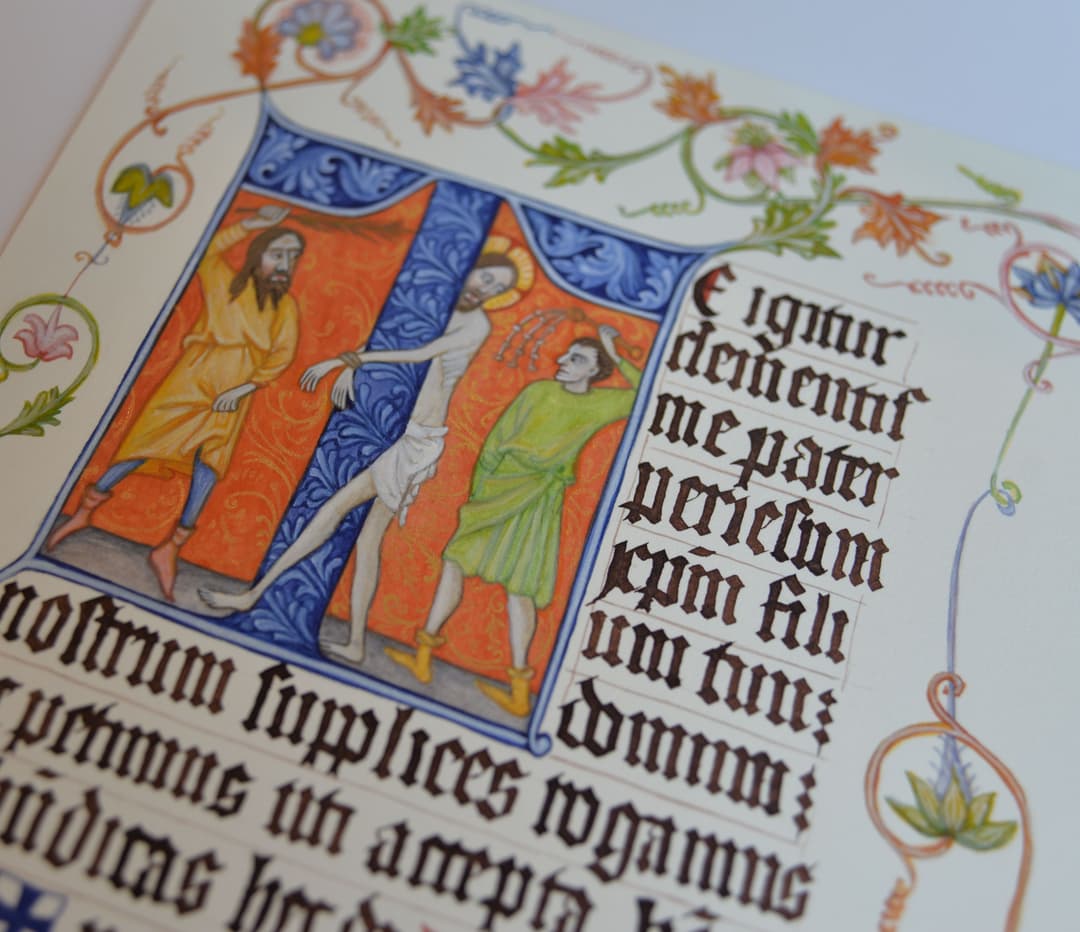 E igitur
clementiſ
me pater
per ieſum
xpm̄ fili
um tuu:
dominum:
noſtrum ſupplices rogamus
petimus uti accepta
n̄dicas hec